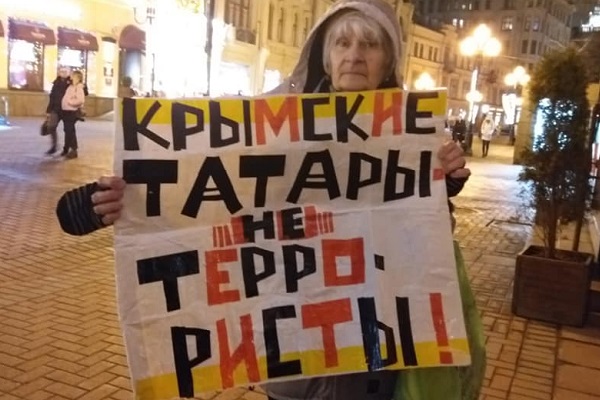 КРЫМСКИЕ
ТАТАРЫ-
НЕ
ТЕРРО-
РИСТЫ!